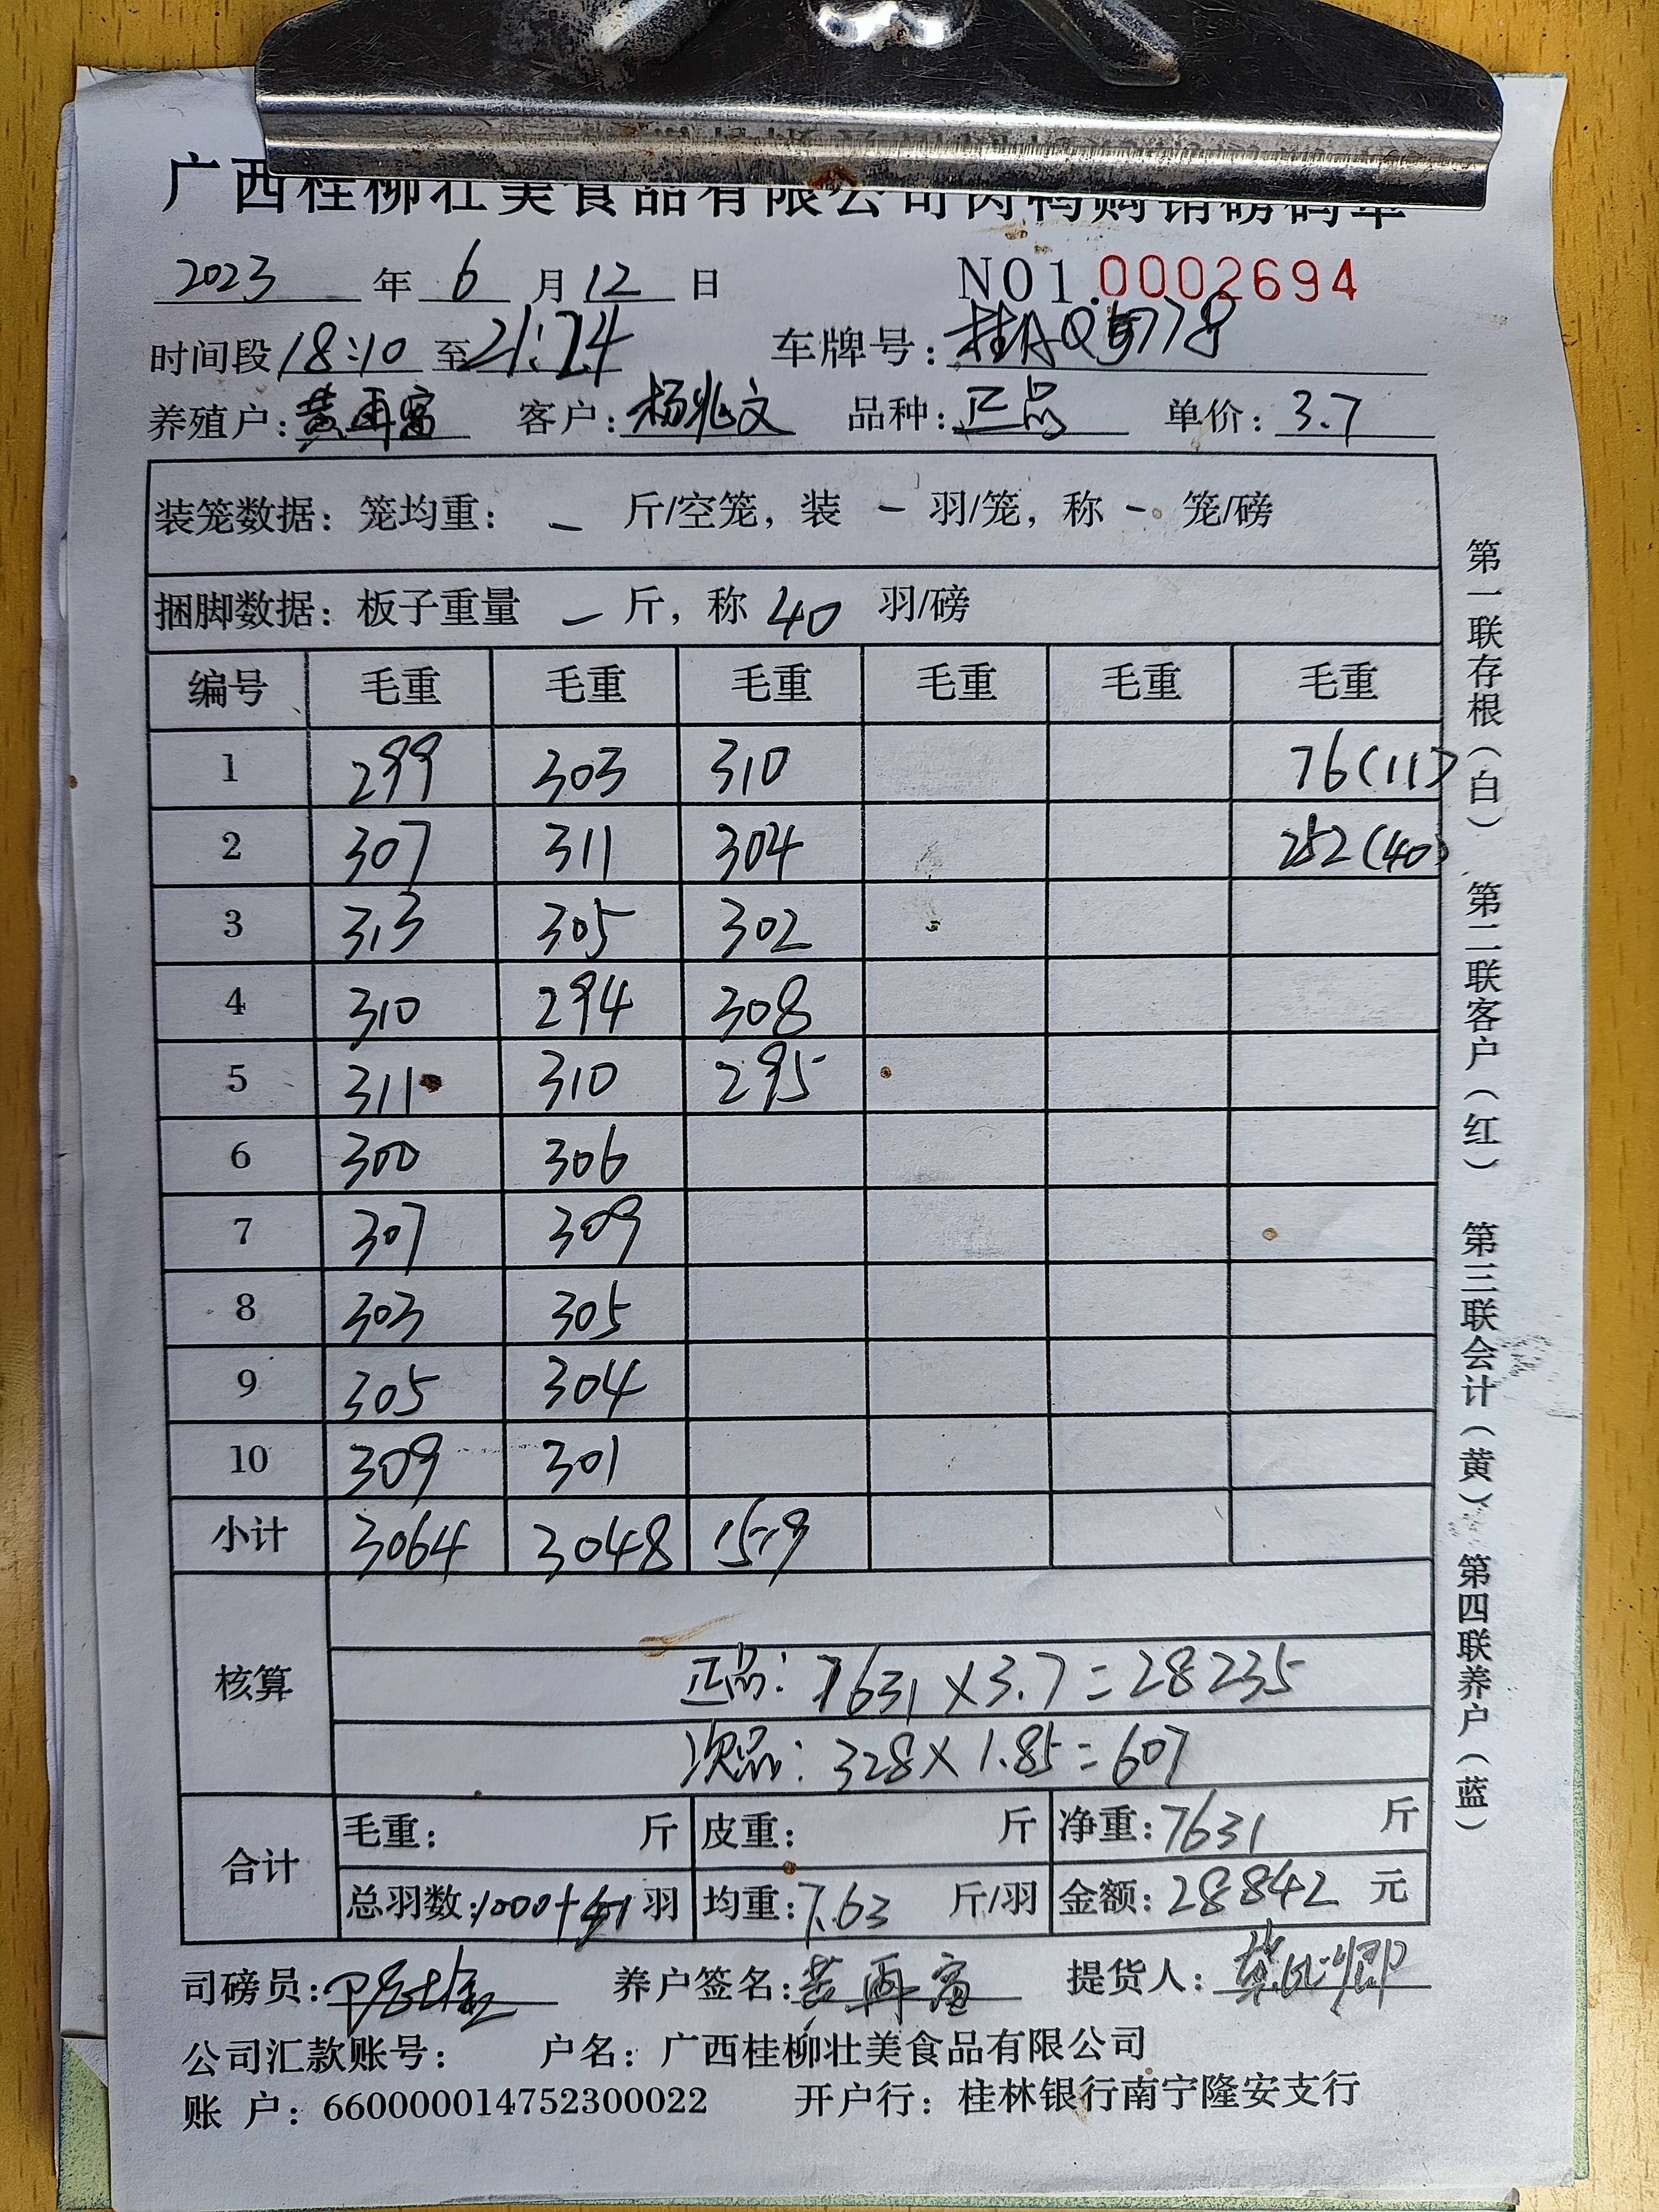 广西桂柳壮美食品有限公司肉鸭购销磅码单
2023 年 6 月 12 日 NO1.0002694
时间段 18:10 至 21:24 车牌号：桂A Q5778
养殖户：黄再富 客户：杨兆文 品种：正品 单价：3.7
装笼数据：笼均重： – 斤/空笼，装 – 羽/笼，称 – 笼/磅
捆脚数据：板子重量 – 斤，称 40 羽/磅
编号 毛重 毛重 毛重 毛重 毛重 毛重
1 299 303 310 76(11)
2 307 311 304 252(40)
3 313 305 302
4 310 294 308
5 311 310 295
6 300 306
7 307 309
8 303 305
9 305 304
10 309 301
小计 3064 3048 1519
核算
正品：7631×3.7=28235
次品：328×1.85=607
合计
毛重： 斤 皮重： 斤 净重：7631 斤
总羽数：1000+51 羽 均重：7.63 斤/羽 金额：28842 元
司磅员： 养户签名：黄再富 提货人：
公司汇款账号： 户名：广西桂柳壮美食品有限公司
账 户：660000014752300022 开户行：桂林银行南宁隆安支行
第一联存根（白） 第二联客户（红） 第三联会计（黄） 第四联养户（蓝）